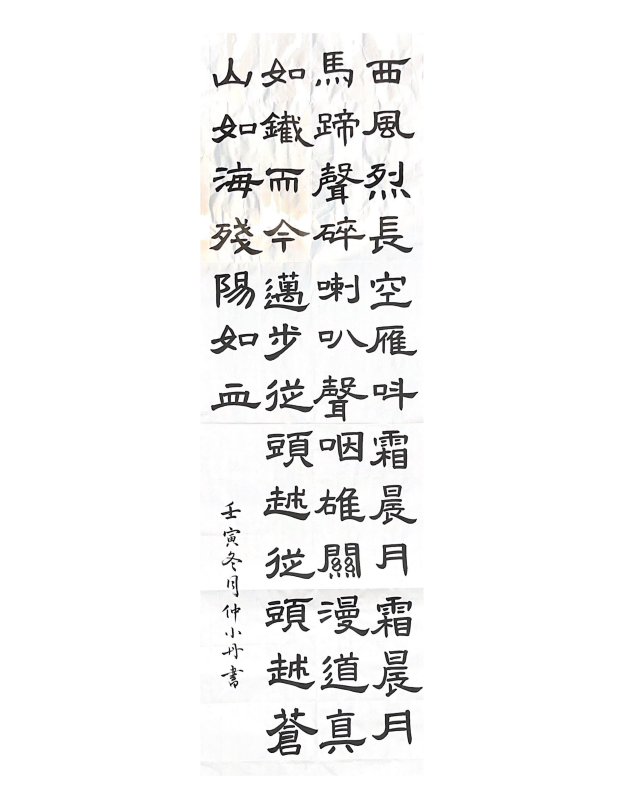 西風烈長空雁叫霜晨月霜晨月
馬蹄聲碎喇叭聲咽雄關漫道真
如鐵而今邁步從頭越從頭越蒼
山如海殘陽如血
壬寅冬月仲小丹書